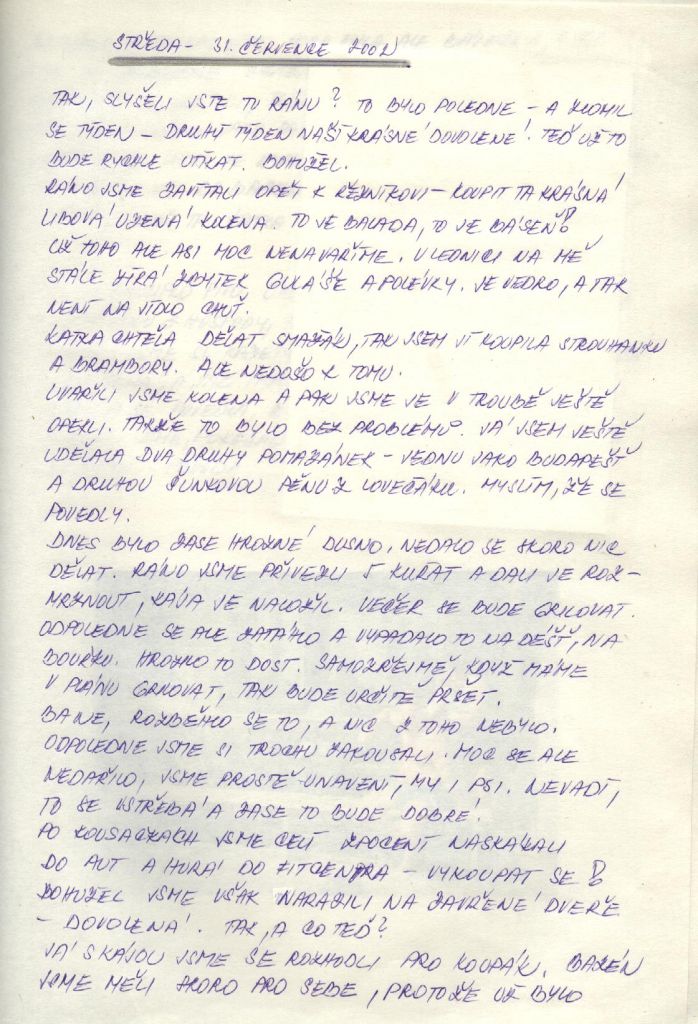 STŘEDA - 31. ČERVENCE 2002
TAK, SLYŠELI JSTE TU RÁNU? TO BYLO POLEDNE - A ZLOMIL
SE TÝDEN - DRUHÝ TÝDEN NAŠÍ KRÁSNÉ DOVOLENÉ! TEĎ UŽ TO
BUDE RYCHLE UTÍKAT. BOHUŽEL.
RÁNO JSME ZAVÍTALI OPĚT K ŘEZNÍKOVI - KOUPIT TA KRÁSNÁ
LIBOVÁ UZENÁ KOLENA. TO JE BALADA, TO JE BÁSEŇ!
UŽ TOHO ALE ASI MOC NENAVAŘÍME. V LEDNICI NA MĚ
STÁLE ZÍRÁ ZBYTEK GULÁŠE A POLÉVKY. JE VEDRO, A TAK
NENÍ NA JÍDLO CHUŤ.
KATKA CHTĚLA DĚLAT SMAŽÁK, TAK JSEM JÍ KOUPILA STROUHANKU
A BRAMBORY. ALE NEDOŠO K TOMU.
UVAŘILI JSME KOLENA A PAK JSME JE V TROUBĚ JEŠTĚ
OPEKLI. TAKŽE TO BYLO BEZ PROBLÉMŮ. JÁ JSEM JEŠTĚ
UDĚLALA DVA DRUHY POMAZÁNEK - JEDNU JAKO BUDAPEŠŤ
A DRUHOU ŠUNKOVOU PĚNU Z LOVEČÁKU. MYSLÍM, ŽE SE
POVEDLY.
DNES BYLO ZASE HROZNÉ DUSNO, NEDALO SE SKORO NIC
DĚLAT. RÁNO JSME PŘIVEZLI 5 KUŘAT A DALI JE ROZ-
MRZNOUT, KÁJA JE NALOŽIL. VEČER SE BUDE GRILOVAT.
ODPOLEDNE SE ALE ZATÁHLO A VYPADALO TO NA DÉŠŤ, NA
BOUŘKU. HROZILO TO DOST. SAMOZŘEJMĚ, KDYŽ MÁME
V PLÁNU GRILOVAT, TAK BUDE URČITĚ PRŠET.
BA NE, ROZBĚHLO SE TO, A NIC Z TOHO NEBYLO.
ODPOLEDNE JSME SI TROCHU ZAKOUSALI. MOC SE ALE
NEDAŘILO, JSME PROSTĚ UNAVENÍ, MY I PSI. NEVADÍ,
TO SE VSTŘEBÁ A ZASE TO BUDE DOBRÉ!
PO KOUSAČKÁCH JSME CELÍ ZPOCENÍ NASKÁKALI
DO AUT A HURÁ DO FITCENTRA - VYKOUPAT SE!
BOHUŽEL JSME VŠAK NARAZILI NA ZAVŘENÉ DVEŘE
- DOVOLENÁ. TAK, A CO TEĎ?
JÁ S KÁJOU JSME SE ROZHODLI PRO KOUPÁK. BAZÉN
JSME MĚLI SKORO PRO SEBE, PROTOŽE UŽ BYLO